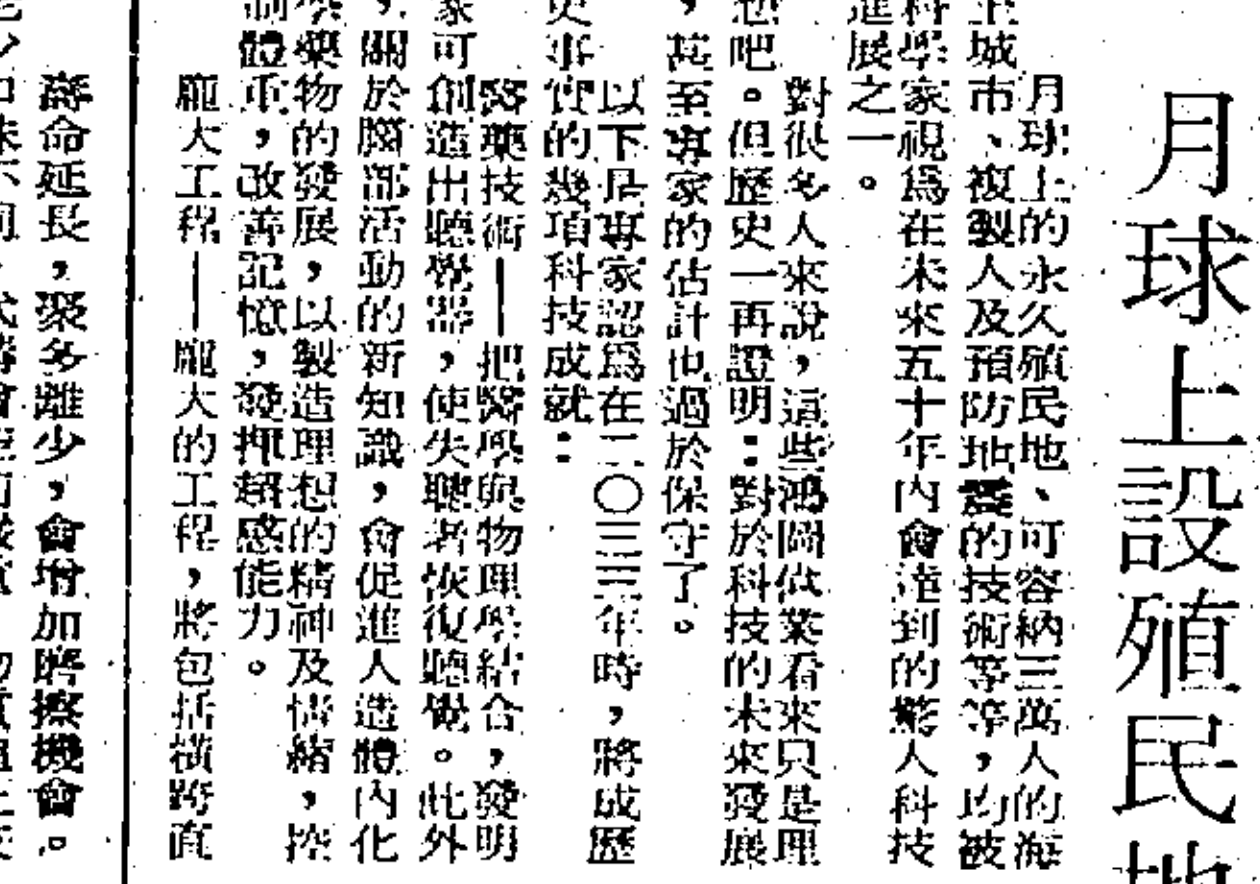 月球上設殖民地
月球上的永久殖民地、可容納三萬人的海
上城市、複製人及預防地震的技術等等，均被
科學家視爲在未來五十年內會達到的驚人科技
進展之一。
對很多人來說，這些鴻圖偉業看來只是理
想吧。但歷史一再證明：對於科技的未來發展
，甚至專家的估計也過於保守了。
以下是專家認爲在二〇三三年時，將成歷
史事實的幾項科技成就：
醫藥技術——把醫學與物理學結合，發明
家可創造出聽覺器，使失聰者恢復聽覺。此外
，關於腦部活動的新知識，會促進人造體內化
學藥物的發展，以製造理想的精神及情緒，控
制體重，改善記憶，發揮超感能力。
龐大工程——龐大的工程，將包括橫跨直
壽命延長，聚多離少，會增加磨擦機會。